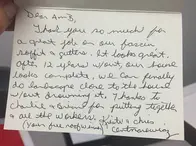 Dear Am B,
Thank you so much for
a great job on our fascia
soffit & gutters. It looks great,
after 12 years wait, our house
looks complete, we can finally
do landscape close to the house
w/out drowning it. Thanks to
Charlie & for putting together
& all the workers.
(your free roofing)